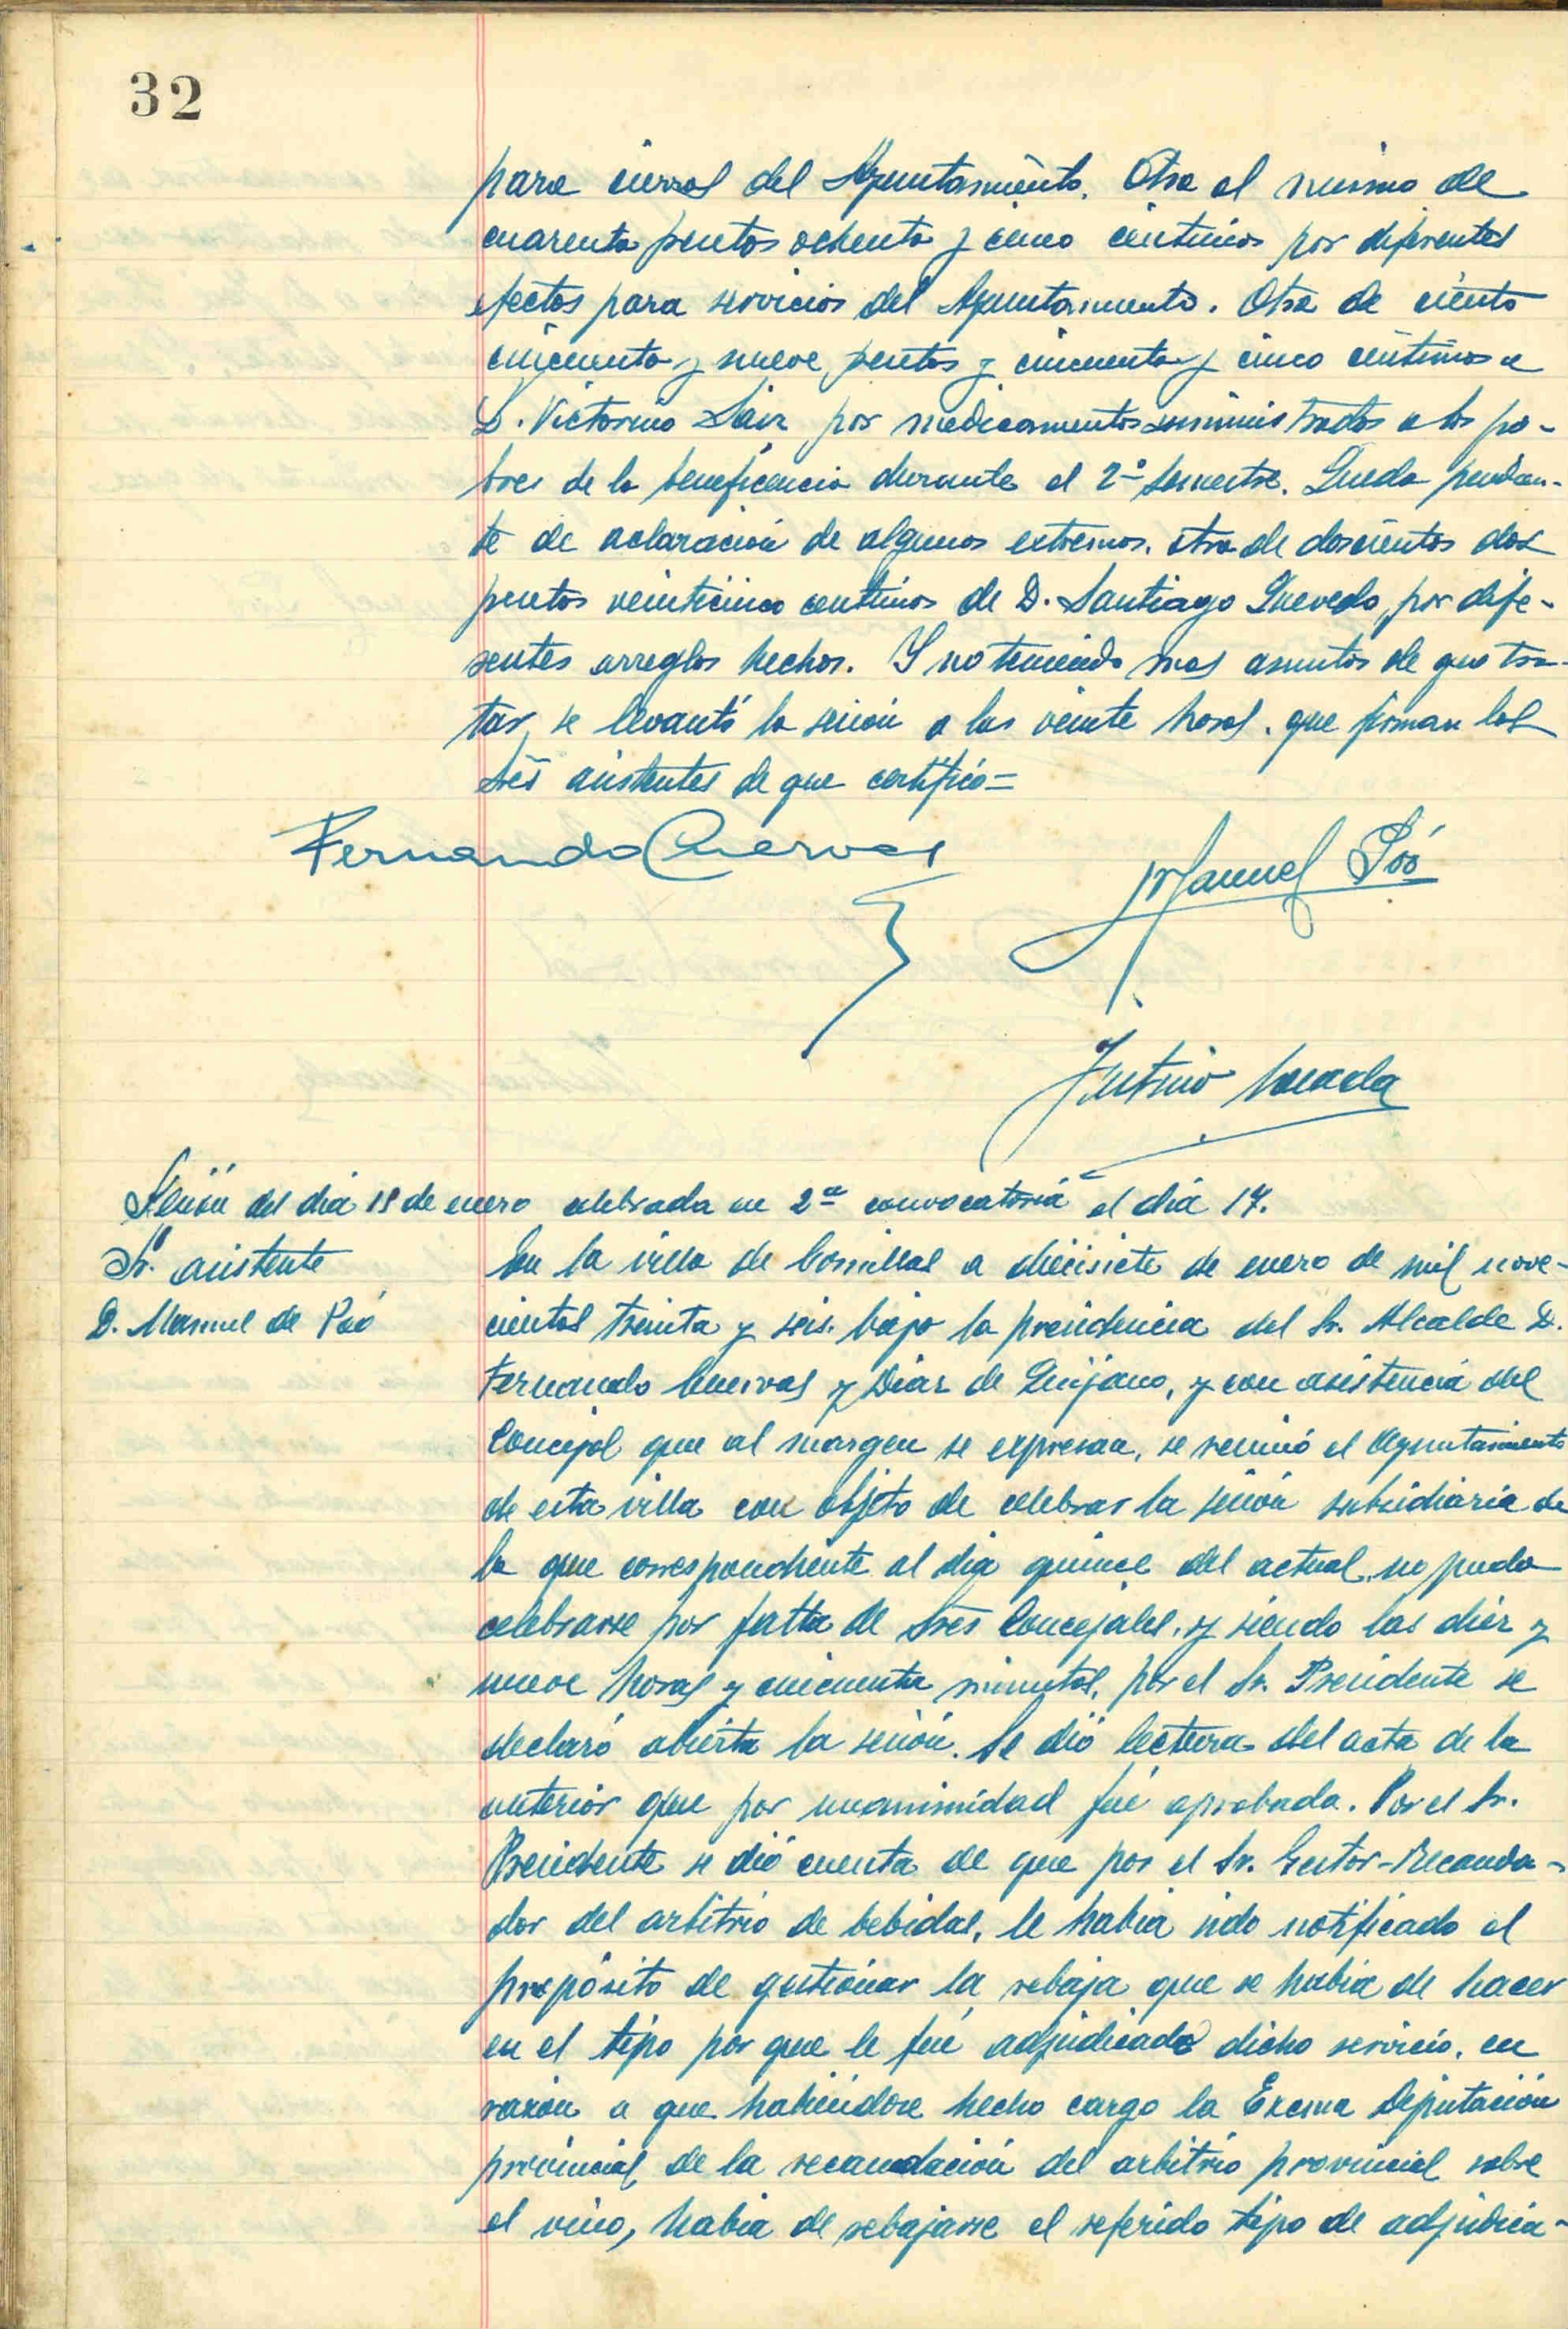 32
para cierres del Ayuntamiento. Otra al mismo de
cuarenta pesetas ochenta y cinco céntimos por diferentes
efectos para servicios del Ayuntamiento. Otra de ciento
cincuenta y nueve pesetas y cincuenta y cinco céntimos a
D. Victorino Sáiz por medicamentos suministrados a los po-
bres de la beneficencia durante el 2º semestre. Queda pendien-
te de aclaración de algunos extremos. otra de doscientos dos
pesetas veinticinco centimos de D. Santiago Quevedo, por dife-
rentes arreglos hechos. Y no teniendo mas asuntos de que tra-
tar, se levantó la sesión a las veinte horas. que firman los
Sres asistentes de que certifico=
Fernando Cuevas
Manuel Póo
Justino
Sesión del día 15 de enero celebrada en 2ª convocatoria el día 17.
Sr. asistente
D. Manuel de Póo
En la villa de Comillas a diecisiete de enero de mil nove-
cientos treinta y seis. bajo la presidencia del Sr. Alcalde D.
Fernando Cuevas y Díaz de Quijano, y con asistencia del
Concejal que al margen se expresa, se reunió el Ayuntamiento
de esta villa con objeto de celebrar la sesión subsidiaria de
la que correspondiente al día quince del actual, no pudo
celebrarse por falta de Sres Concejales, y siendo las diez y
nueve horas y cincuenta minutos, por el Sr. Presidente se
declaró abierta la sesión. Se dió lectura del acta de la
anterior que por unanimidad fué aprobada. Por el Sr.
Presidente se dió cuenta de que por el Sr. Gestor-Recauda-
dor del arbitrio de bebidas, le había sido notificado el
propósito de gestionar la rebaja que se había de hacer
en el tipo por que le fué adjudicado dicho servicio, en
razón a que habiéndose hecho cargo la Excma Diputación
provincial de la recaudación del arbitrio provincial sobre
el vino, había de rebajarse el referido tipo de adjudica-